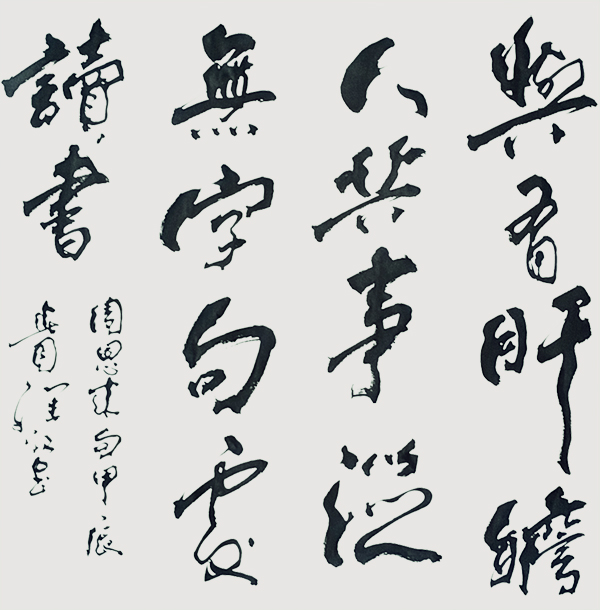 與有肝膽
人共事從
無字句處
讀書
周恩来句甲辰
書